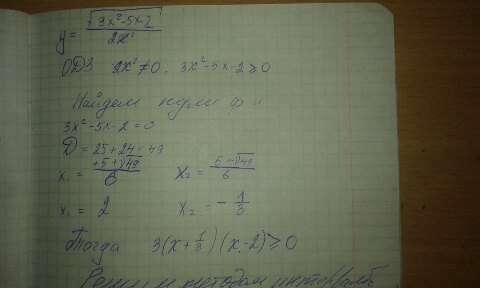 y = √(3x²-5x-2) / 2x²
ОДЗ 2x²≠0. 3x²-5x-2≥0
Найдем нули ф и
3x²-5x-2=0
D = 25+24=49
x₁ = (+5+√49)/6 x₂ = (5-√49)/6
x₁ = 2 x₂ = -1/3
Тогда 3(x+1/3)(x-2)≥0
методом интервалов